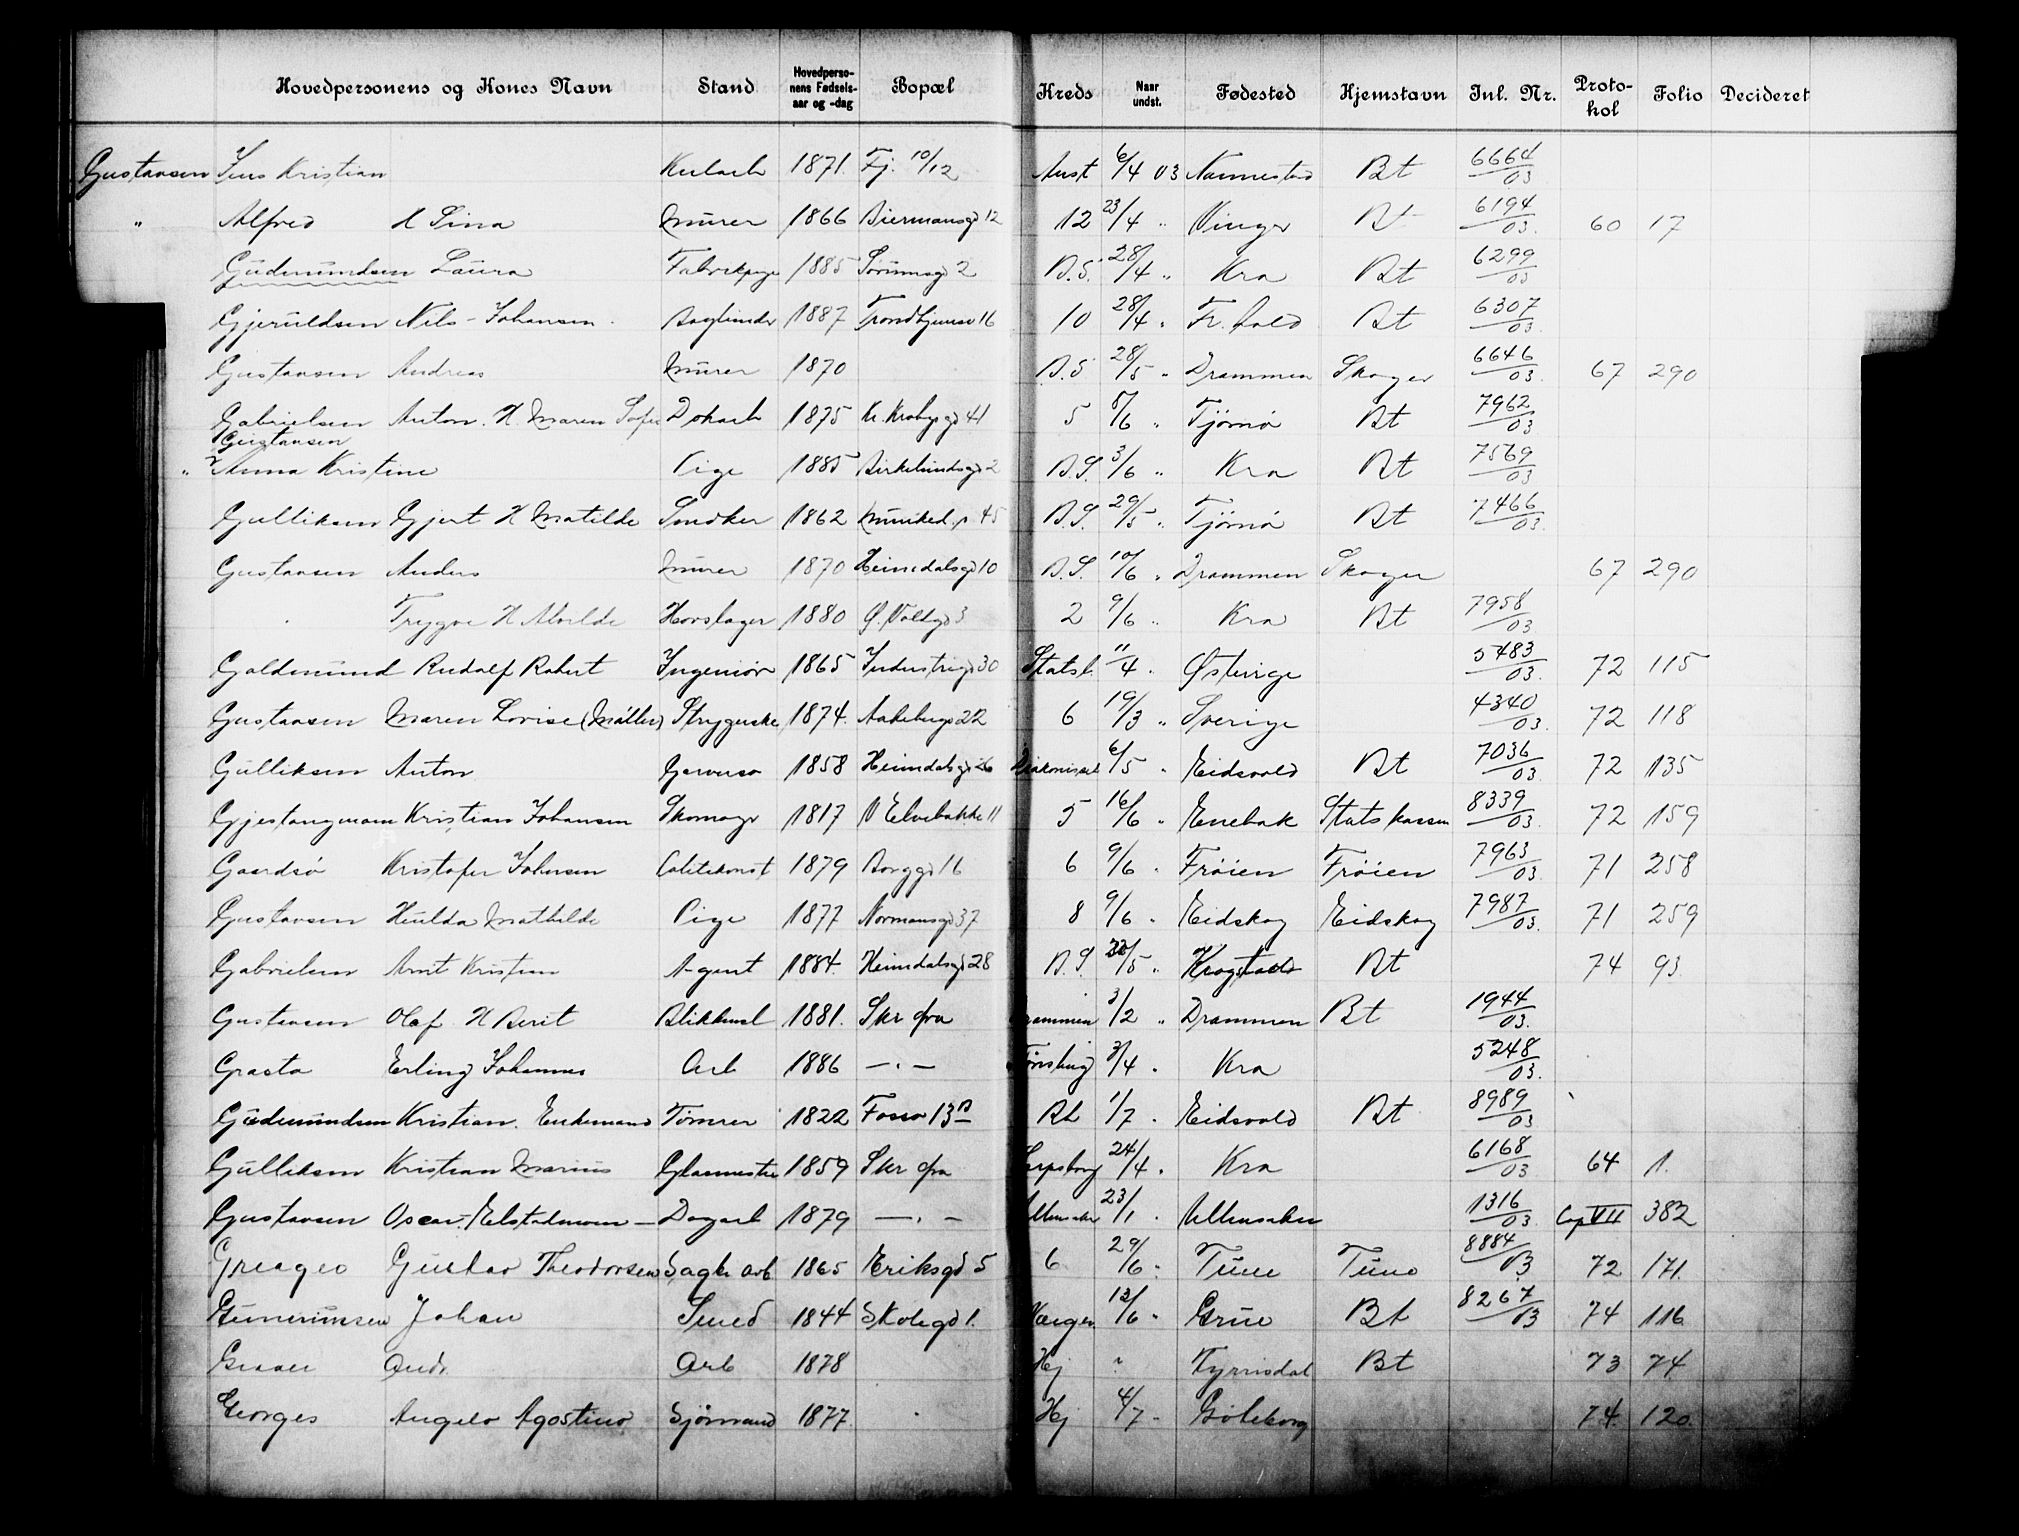 Hovedpersonens og Kones Navn Stand Hovedperso-nens Fødsels-aar og -dag Bopæl Kreds Naar undst. Fødested Hjemstavn Inl. Nr. Proto-kol Folio Decideret
Gustavsen Jens Kristian 1871. Fj. 10/12 Anst 6/4 03 Nannestad Bt 6664/03
" Alfred H Lina Murer 1866 Biermansgd 12 12 23/4 " Vinger Bt 6194/03 60 17
Gudmundsen Laura Fabrikpige 1885 2 B.S. 28/4 " Kra Bt 6299/03
Gjeruldsen Nils Johansen Bogbinder 1887 Trondhjemsv 16 10 28/4 " Fr. hald Bt 6307/03
Gustavsen Andreas Murer 1870 B.S 28/5 " Drammen Skoger 6646/03 67 290
Gabrielsen Anton. H. Maren Sofie Dokarb 1875 Kr. Krohgs gd 41 5 5/6 " Tjömö Bt 7962/03
Gustavsen
" Anna Kristine Pige 1885 Birkelundsgd 2 B.S. 3/6 " Kra Bt 7569/03
Gulliksen Gjert H Matilde Snedker 1862 Munked. v 45 B.S. 29/5 " Tjömö Bt 7466/03
Gustavsen Anders Murer 1870 Heimdalsgd 10 B.S. 10/6 " Drammen Skoger 67 290
" Trygve H Alvilde Hovslager 1880 Ø. Voldgd 3 2 9/6 " Kra Bt 7958/03
Goldmund Rudolf Robert Ingeniør 1865 Industrigd 30 Statsb. 11/4 " Østerige 5483/03 72 115
Gustavsen Maren Lovise (Møller) Strygerske 1874. Aakebergv 22 6 19/3 " Sverige 4340/03 72 118
Gulliksen Anton Garversv 1858 Heimdalsgd 26 Diakonissel 6/5 " Eidsvold Bt 7036/03 72 135
Gjestangmoen Kristian Johansen Skomagr 1817 V Elvebakke 11 5 16/6 " Enebak Statskassen 8339/03 72 159
Gaardsö Kristofer Johnsen Politikonst 1879 Borggd 16 6 9/6 " Fröien Fröien 7963/03 71 258
Gustavsen Hulda Mathilde Pige 1877 Normansgd 37 8 9/6 " Eidskog Eidskog 7987/03 71 259
Gabrielsen Arnt Kristian Agent 1884. Heimdalsgd 28 B.S. /5 " Krogstad Bt 74 93
Gustavsen Olaf H Berit Blikkensl 1881. Skr fra Drammen 3/2 " Drammen Bt 1944/03.
Grasto Erling Johannes Arb 1886 — " — Tønsberg 3/4 " Kra 5248/03.
Gudmundsen Kristian. Enkemand Tømrer 1822 Fossv 13 B Bt 1/7 . Eidsvold Bt 8989/03
Gulliksen Kristian Marius Glasmester 1859 Skr fra Sarpsborg 24/4 " Kra 6168/03 64 1.
Gustavsen Oscar Elstadmoen — Dagarb 1879 — " — Ullensaker 23/1 " Ullensaker 1316/03 Cap VII 382
Greager Gustav Theodorsen Sagbr arb 1865 Eriksgd 5 6 29/6 " Tune Tune 8884/03 72 171.
Gunerinsen Johan Smed 1844 Skolegd 1. Varger 12/6 " Grue Bt 8267/03 74 116
Graver Andr. Arb 1878 Hj " Fyrrisdal Bt 73 74
Georges Angelo Agostino Sjømand 1877. Hj 4/7 " Göteborg 74. 120.